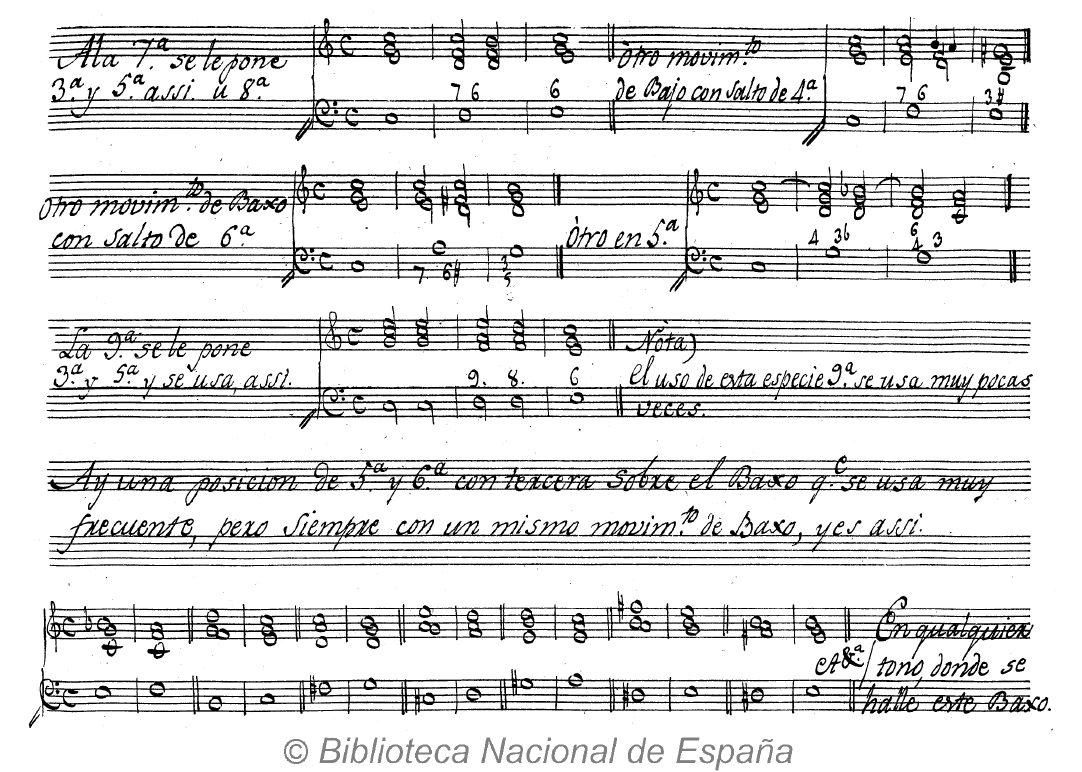 A la 7.ª se le pone
3.ª y 5.ª assi. u 8.ª
7 6
6
òtro movim.to
de Bajo con salto de 4.ª
7 6
3#
òtro movim.to de Baxo
con salto de 6.ª
7. 6#
3
5
Òtro en 5.ª
4 3b
6
4 3
La 9.ª se le pone
3.ª y 5.ª y se usa, assi.
9. 8. 6
Nòta)
el uso de esta especie 9.ª se usa muy pocas
veces.
Ay una posicion de 5.ª y 6.ª con tercera sobre el Baxo q.e se usa muy
frecuente, pero siempre con un mismo movim.to de Baxo, y es assi.
En qualquier
tono, donde se
halle este Baxo.
© Biblioteca Nacional de España